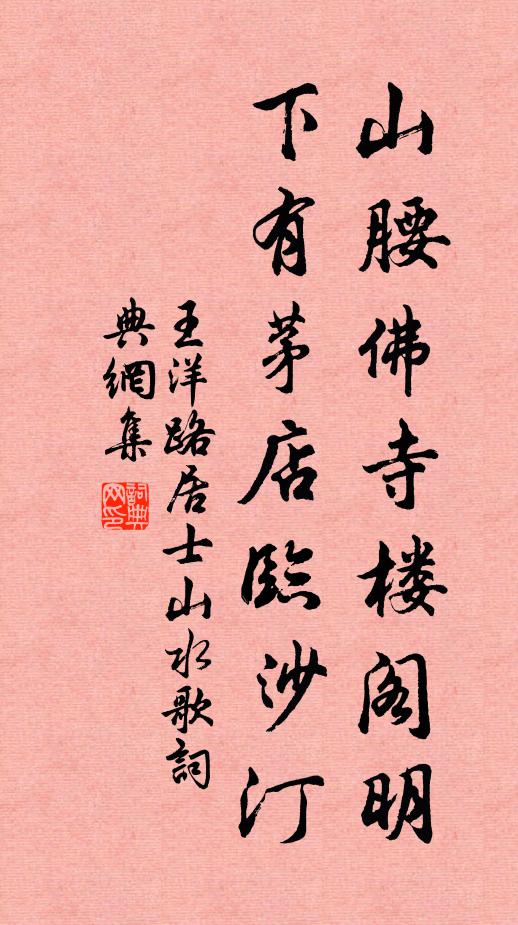 山腰佛寺楼阁明
下有茅店臨沙汀
王洋路居士山水歌詞
典網集
詞典
网印